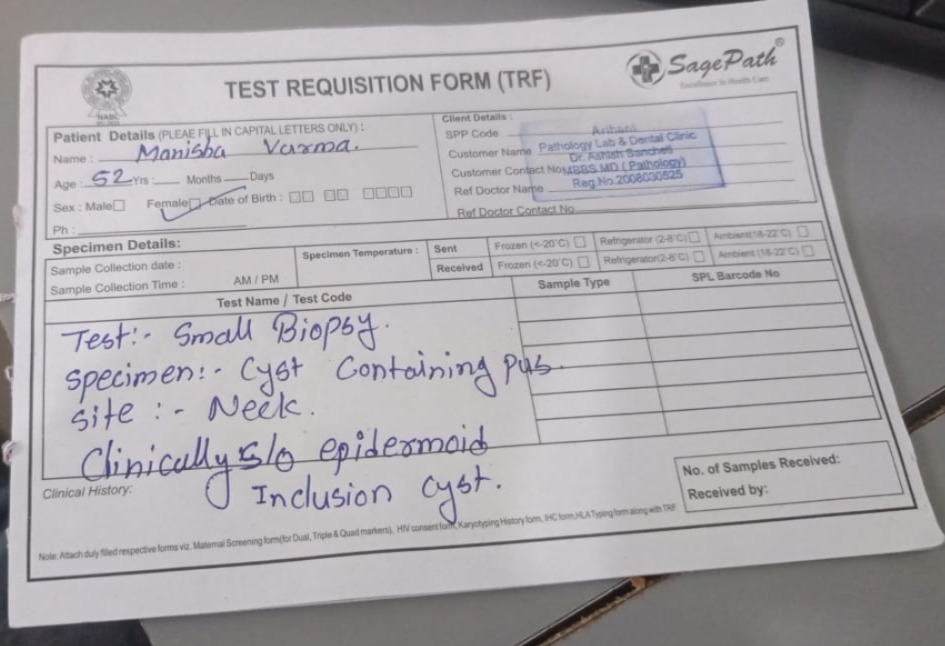 NABL
TEST REQUISITION FORM (TRF)
SagePath®
Excellence In Health Care
Patient Details (PLEAE FILL IN CAPITAL LETTERS ONLY) :
Name : Manisha Varma.
Age : 52 Yrs : Months Days
Sex : Male Female Date of Birth :
Ph :
Client Details :
SPP Code
Customer Name
Customer Contact No
Ref Doctor Name
Ref Doctor Contact No
Arihant
Pathology Lab & Dental Clinic
Dr. Ashish Sancheti
MBBS.MD ( Pathology)
Reg.No.2008030525
Specimen Details:
Sample Collection date :
Sample Collection Time : AM / PM
Specimen Temperature :
Sent Frozen (<-20°C) Refrigerator (2-8°C) Ambient(18-22°C)
Received Frozen (<-20°C) Refrigerator(2-8°C) Ambient (18-22°C)
Test Name / Test Code Sample Type SPL Barcode No
Test:- Small Biopsy.
Specimen:- Cyst Containing pus.
Site :- Neck.
Clinically s/o epidermoid
Inclusion Cyst.
Clinical History:
No. of Samples Received:
Received by:
Note: Attach duly filled respective forms viz. Maternal Screening form(for Dual, Triple & Quad markers), HIV consent form, Karyotyping History form, IHC form,HLA Typing form along with TRF